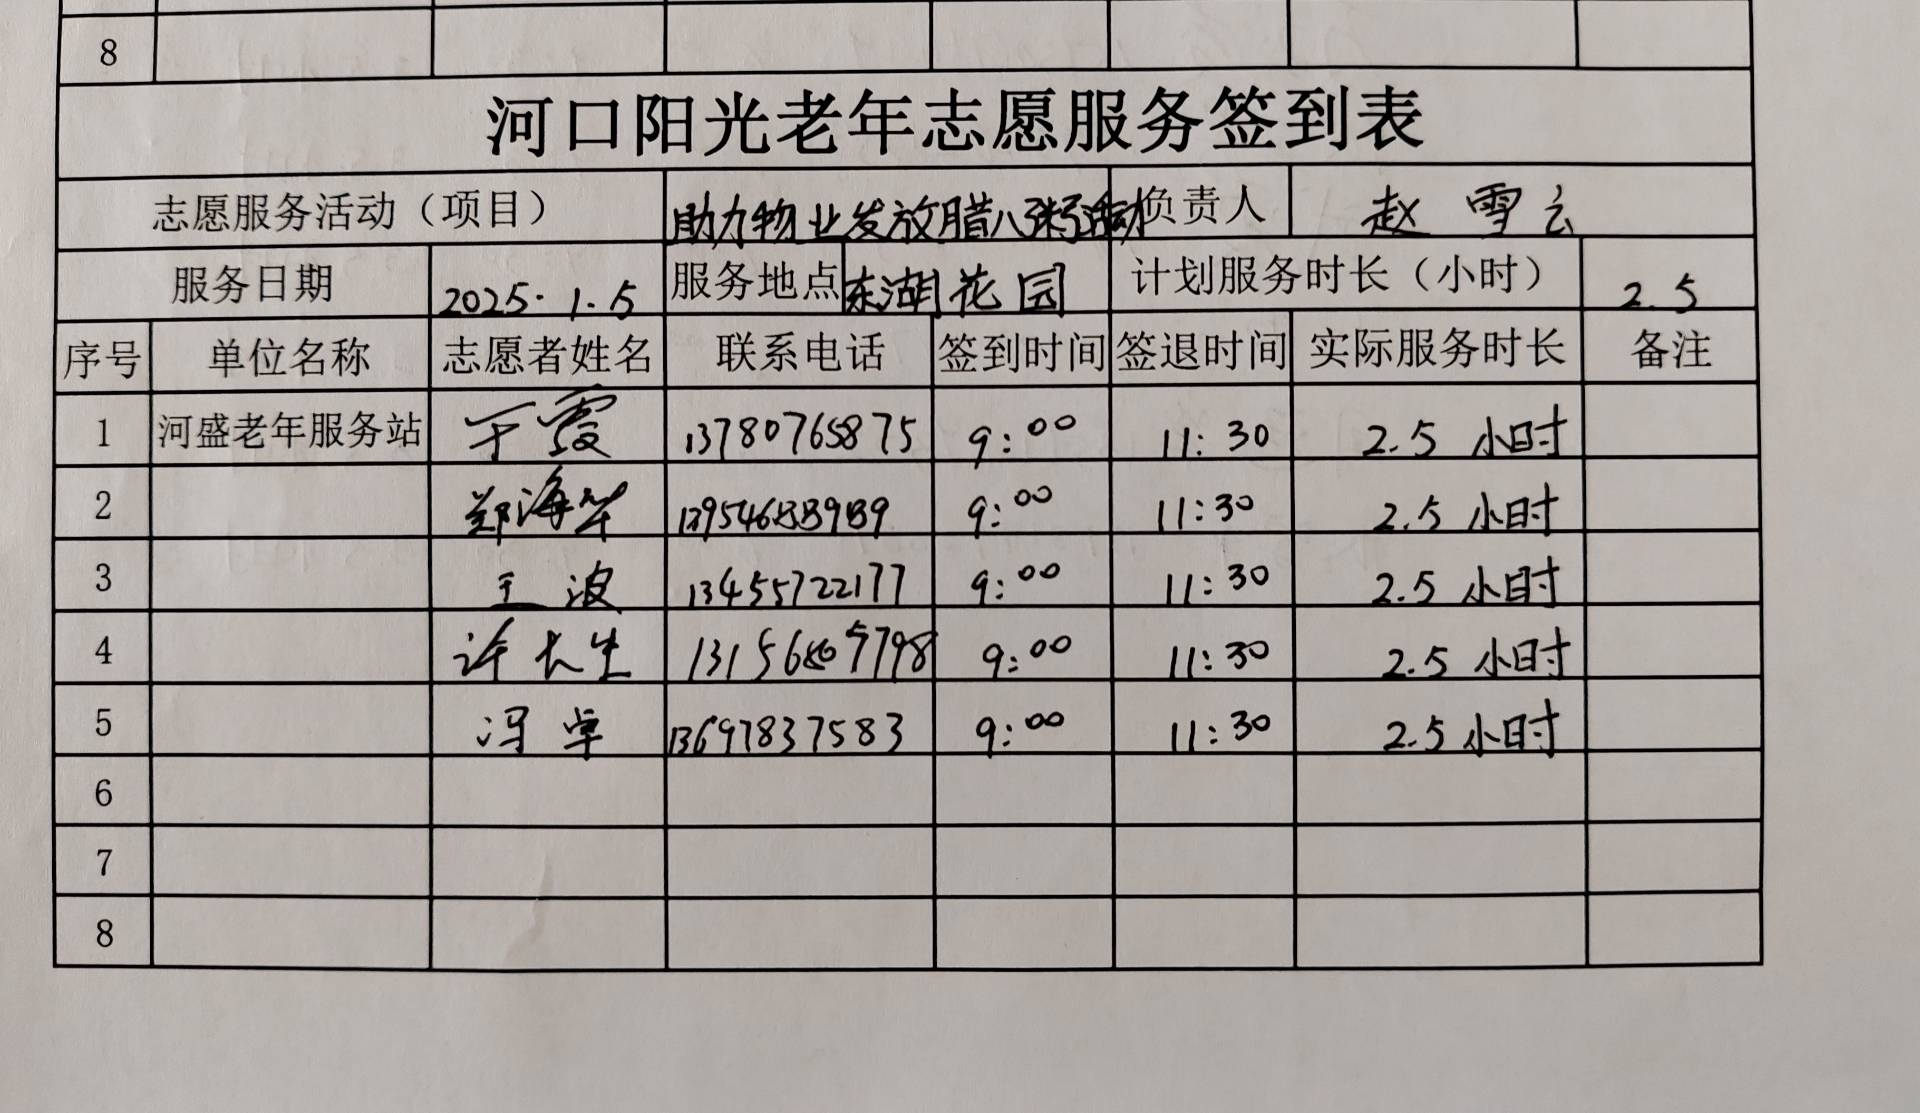 8
河口阳光老年志愿服务签到表
志愿服务活动（项目） 助力物业发放腊八粥活动 负责人 赵雪云
服务日期 2025.1.5 服务地点 东湖花园 计划服务时长（小时） 2.5
序号 单位名称 志愿者姓名 联系电话 签到时间 签退时间 实际服务时长 备注
1 河盛老年服务站 于霞 13780765875 9:00 11:30 2.5 小时
2 郑海华 9:00 11:30 2.5 小时
3 王波 13455722177 9:00 11:30 2.5 小时
4 许长生 9:00 11:30 2.5 小时
5 冯卓 13697837583 9:00 11:30 2.5 小时
6
7
8